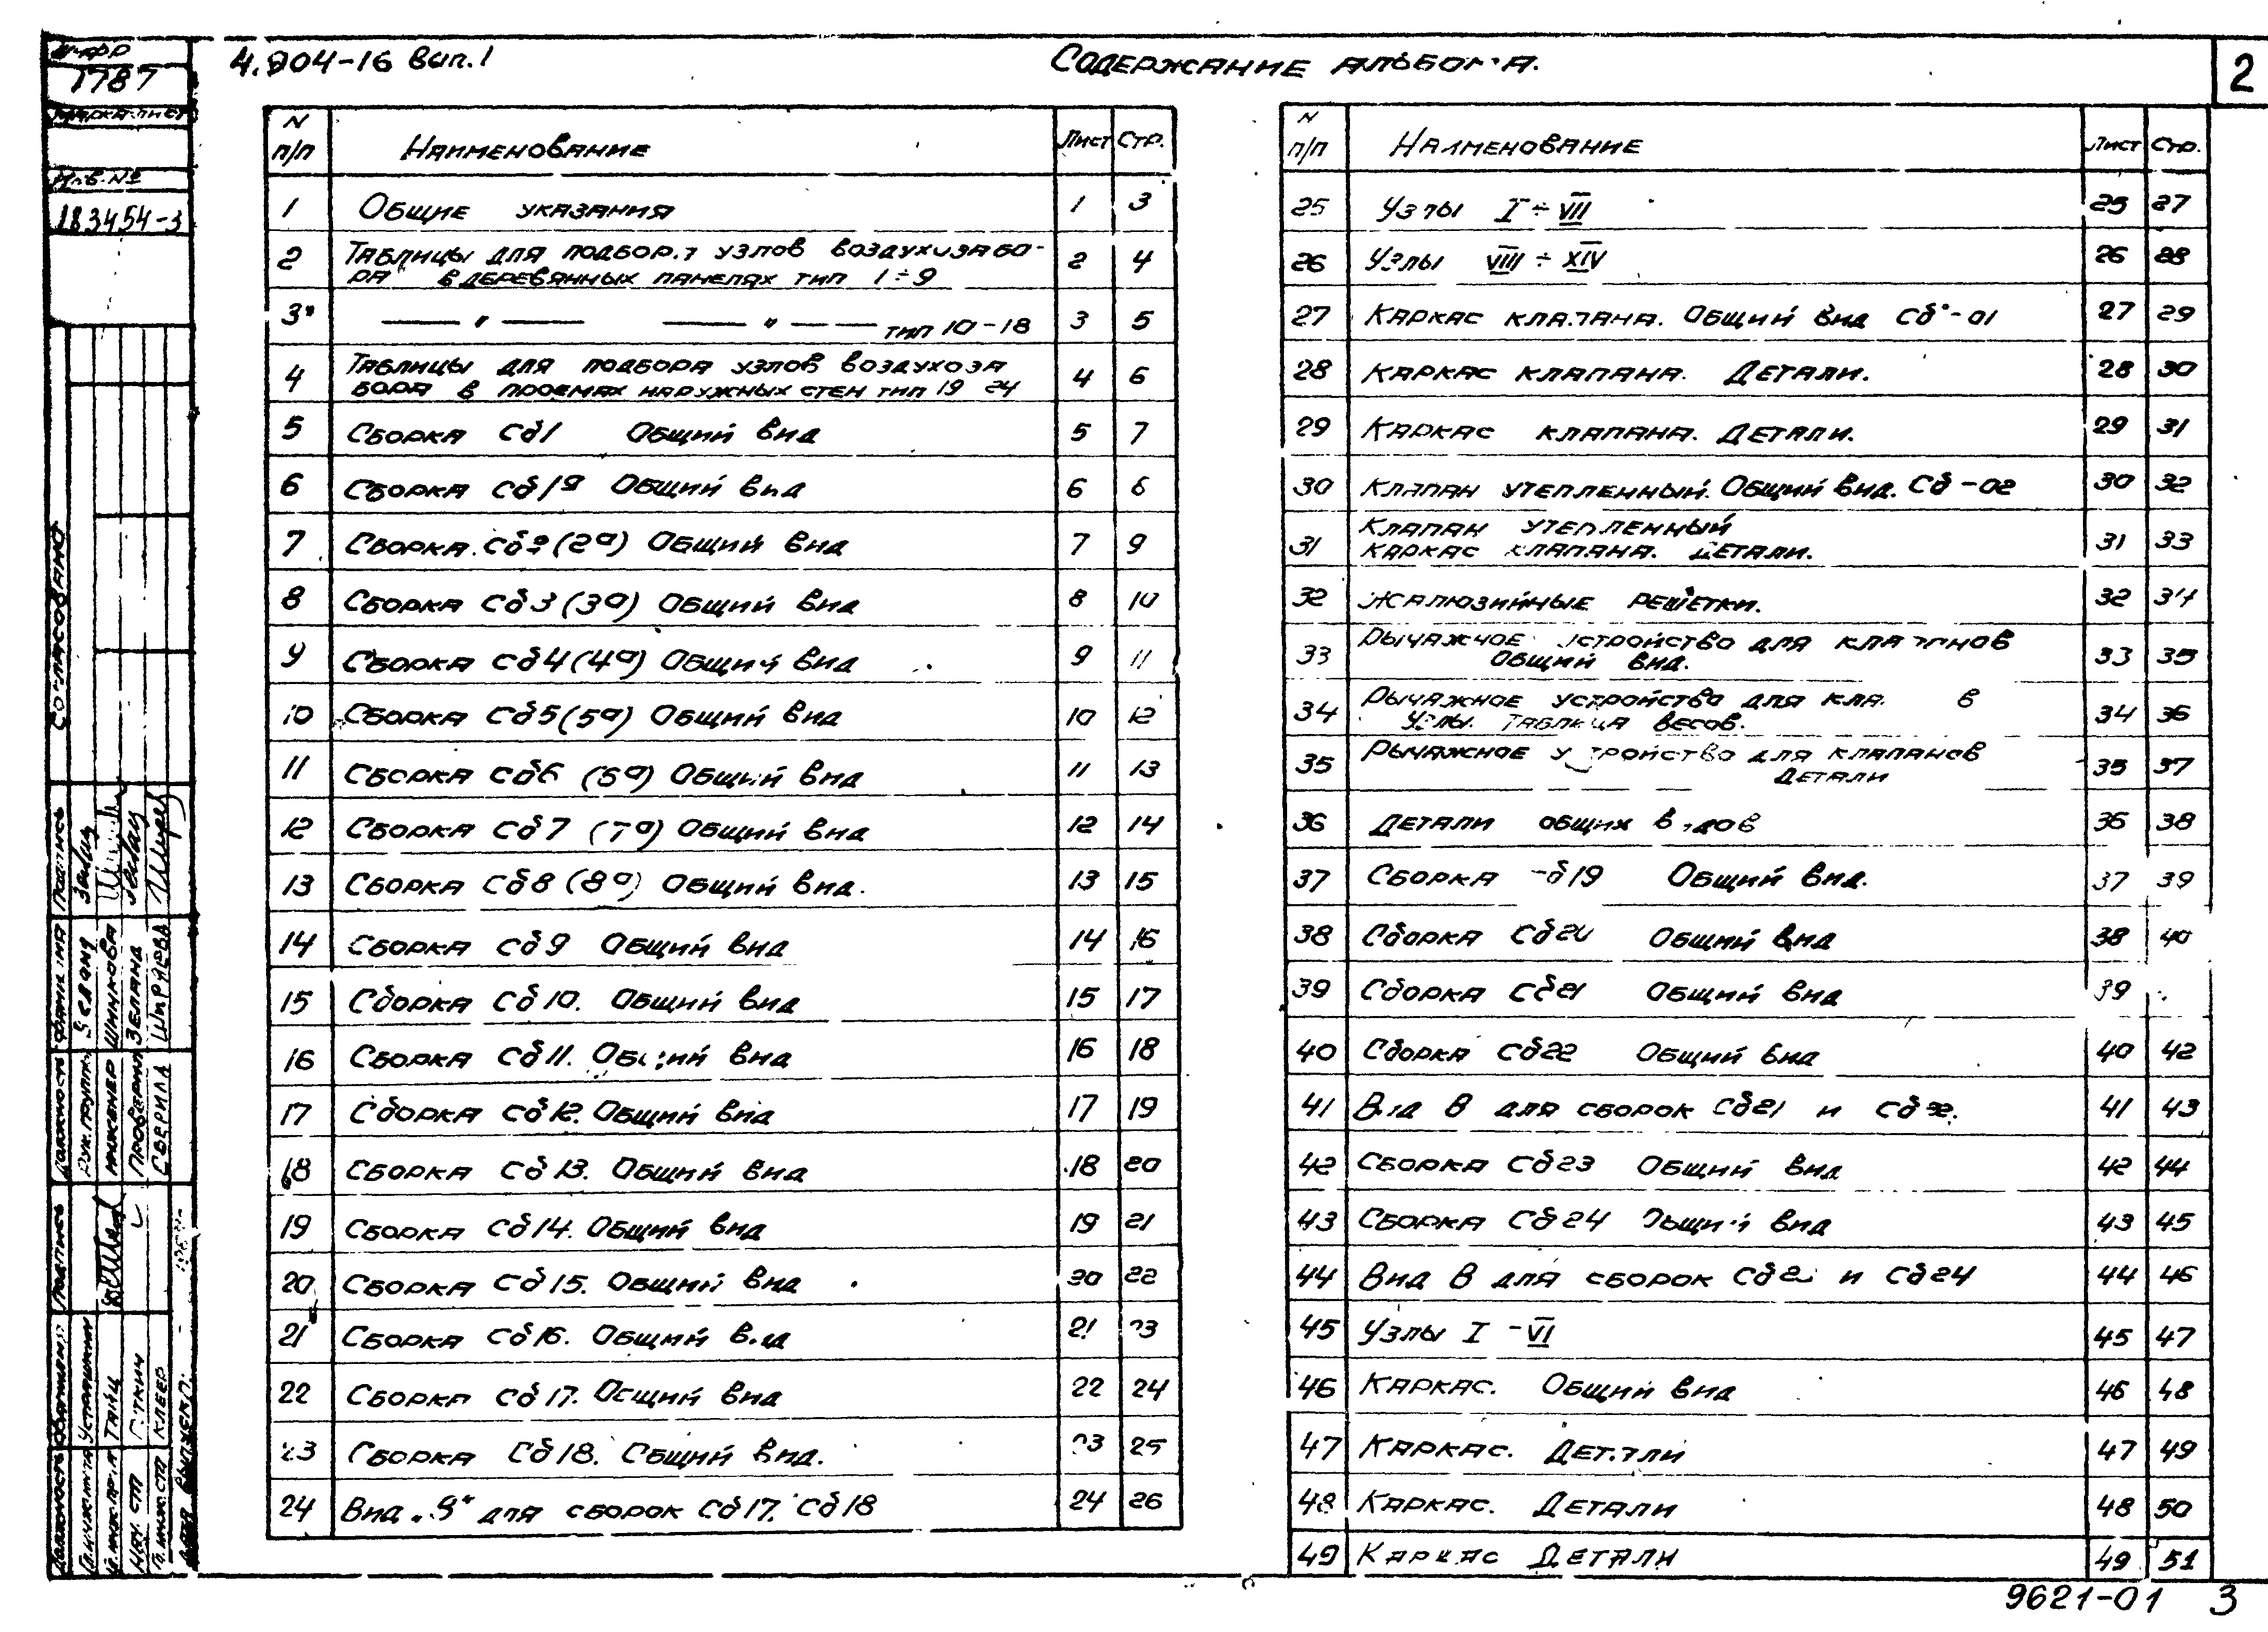 4.904-16 Вып.1
Содержание альбома.
2
1787
Инв. №
183454-3
N п/п Наименование Лист Стр.
1 Общие указания 1 3
2 Таблицы для подбора узлов воздухозабо-
ра в деревянных панелях тип 1÷9 2 4
3 —〃— —〃— тип 10-18 3 5
4 Таблицы для подбора узлов воздухоза
бора в проемах наружных стен тип 19 24 4 6
5 Сборка Сб1 Общий вид 5 7
6 Сборка Сб1а Общий вид 6 8
7 Сборка Сб2(2а) Общий вид 7 9
8 Сборка Сб3(3а) Общий вид 8 10
9 Сборка Сб4(4а) Общий вид 9 11
10 Сборка Сб5(5а) Общий вид 10 12
11 Сборка Сб6 (6а) Общий вид 11 13
12 Сборка Сб7 (7а) Общий вид 12 14
13 Сборка Сб8(8а) Общий вид. 13 15
14 Сборка Сб9 Общий вид 14 16
15 Сборка Сб10. Общий вид 15 17
16 Сборка Сб11. Общий вид 16 18
17 Сборка Сб12. Общий вид 17 19
18 Сборка Сб13. Общий вид 18 20
19 Сборка Сб14. Общий вид 19 21
20 Сборка Сб15. Общий вид 20 22
21 Сборка Сб16. Общий вид 21 23
22 Сборка Сб17. Общий вид 22 24
23 Сборка Сб18. Общий вид. 23 25
24 Вид „В“ для сборок Сб17. Сб18 24 26
N п/п Наименование Лист Стр.
25 Узлы I÷VII 25 27
26 Узлы VIII÷XIV 26 28
27 Каркас клапана. Общий вид Сб-01 27 29
28 Каркас клапана. Детали. 28 30
29 Каркас клапана. Детали. 29 31
30 Клапан утепленный. Общий вид. Сб-02 30 32
31 Клапан утепленный
каркас клапана. Детали. 31 33
32 Жалюзийные решетки. 32 34
33 Рычажное устройство для клапанов
Общий вид. 33 35
34 Рычажное устройство для кла в
Узлы. Таблица весов. 34 36
35 Рычажное устройство для клапанов
Детали 35 37
36 Детали общих видов 36 38
37 Сборка Сб19 Общий вид. 37 39
38 Сборка Сб20 Общий вид 38 40
39 Сборка Сб21 Общий вид 39
40 Сборка Сб22 Общий вид 40 42
41 Вид В для сборок Сб21 и Сб22. 41 43
42 Сборка Сб23 Общий вид 42 44
43 Сборка Сб24 Общий вид 43 45
44 Вид В для сборок Сб2 и Сб24 44 46
45 Узлы I -VI 45 47
46 Каркас. Общий вид 46 48
47 Каркас. Детали 47 49
48 Каркас. Детали 48 50
49 Каркас Детали 49 51
9621-01 3
Согласовано
Должность Фамилия Подпись
Рук. группы
Инженер Шинкова
Проверил Зеланд
Сверила Ширяева
Должность Фамилия Подпись
Гл. инж. ин-та Усташкин
Гл. инж. пр-та Тайц
Гл. инж. СТО Клеер
Дата выпуска